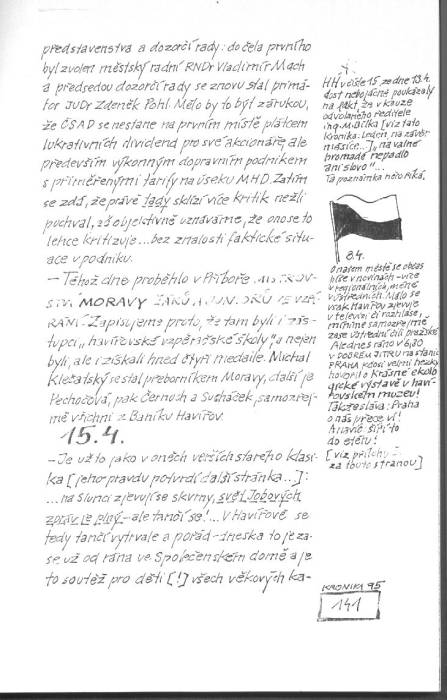 představenstva a dozorčí rady: do čela prvního
byl zvolen městský radní RNDr Vladimír Mach
a předsedou dozorčí rady se znovu stal primá-
tor JUDr Zdeněk Pohl. Mělo by to být zárukou,
že ČSAD se nestane na prvním místě plátcem
lukrativních dividend pro své akcionáře, ale
především výkonným dopravním podnikem
s přiměřenými tarify na úseku MHD. Zatím
se zdá, že právě tady sklízí více kritik nežli
pochval, zč objektivně uznáváme, že ono se to
lehce kritizuje... bez znalosti faktické situ-
ace v podniku.
– Téhož dne proběhlo v Příboře MISTROV-
STVÍ MORAVY ŽÁKŮ A JUNIORŮ VE VZPÍ-
RÁNÍ. Zapisujeme proto, že tam byli i zás-
tupci „havířovské vzpěračské školy“ a nejen
byli, ale i získali hned čtyři medaile. Michal
Klečatský se stal přeborníkem Moravy, další je
Pechočová, pak Černoch a Sucháček, samozřej-
mě všichni z Baníku Havířov.
15.4.
– Je už to jako v oněch verších starého klasi-
ka [jeho pravdu potvrdí další stránka...]:
... na slunci zjevují se skvrny, svět Jobových
zpráv je plný – ale tančí se!... V Havířově se
tedy tančí vytrvale a pořád – dneska to je za-
se už od rána ve Společenském domě a je
to soutěž pro děti [!] všech věkových ka-
HH v čísle 15 ze dne 13.4.
dost nebojácně poukázaly
na fakt, že v kauze
odvolaného ředitele
ing. M. Bílka [viz tato
Kronika: Leden, na závěr
měsíce...] „na valné
hromadě nepadlo
ani slovo“...
Ta poznámka něco říká.
8.4.
O našem městě se občas
píše v novinách – více
v regionálních, méně
v ústředních. Málo se
však Havířov zjevuje
v televizi či rozhlase,
míníme samozřejmě
zase ústřední čili pražské.
Ale dnes ráno v 6,30
v DOBRÉM JITRU na stanici
PRAHA kdosi velmi hezky
hovořil o krásné ekolo
gické výstavě v haví-
řovském muzeu!
Takže sláva: Praha
o nás přece ví!
A navíc šíří to
do éteru!
[viz přílohy –
za touto stranou]
KRONIKA 95
141